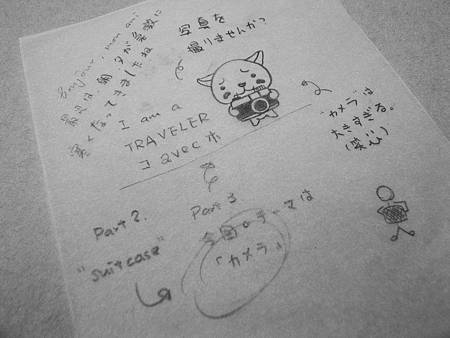 Bonjour, mon ami!
最近は朝・夕が急激に
寒くなってきましたね
写真を
撮りませんか?
I am a
TRAVELER
コ avec ホ
"カメラ"は
大きすぎる。
(笑)
Part 2.
"suitcase"
Part 3
今回のテーマは
「カメラ」